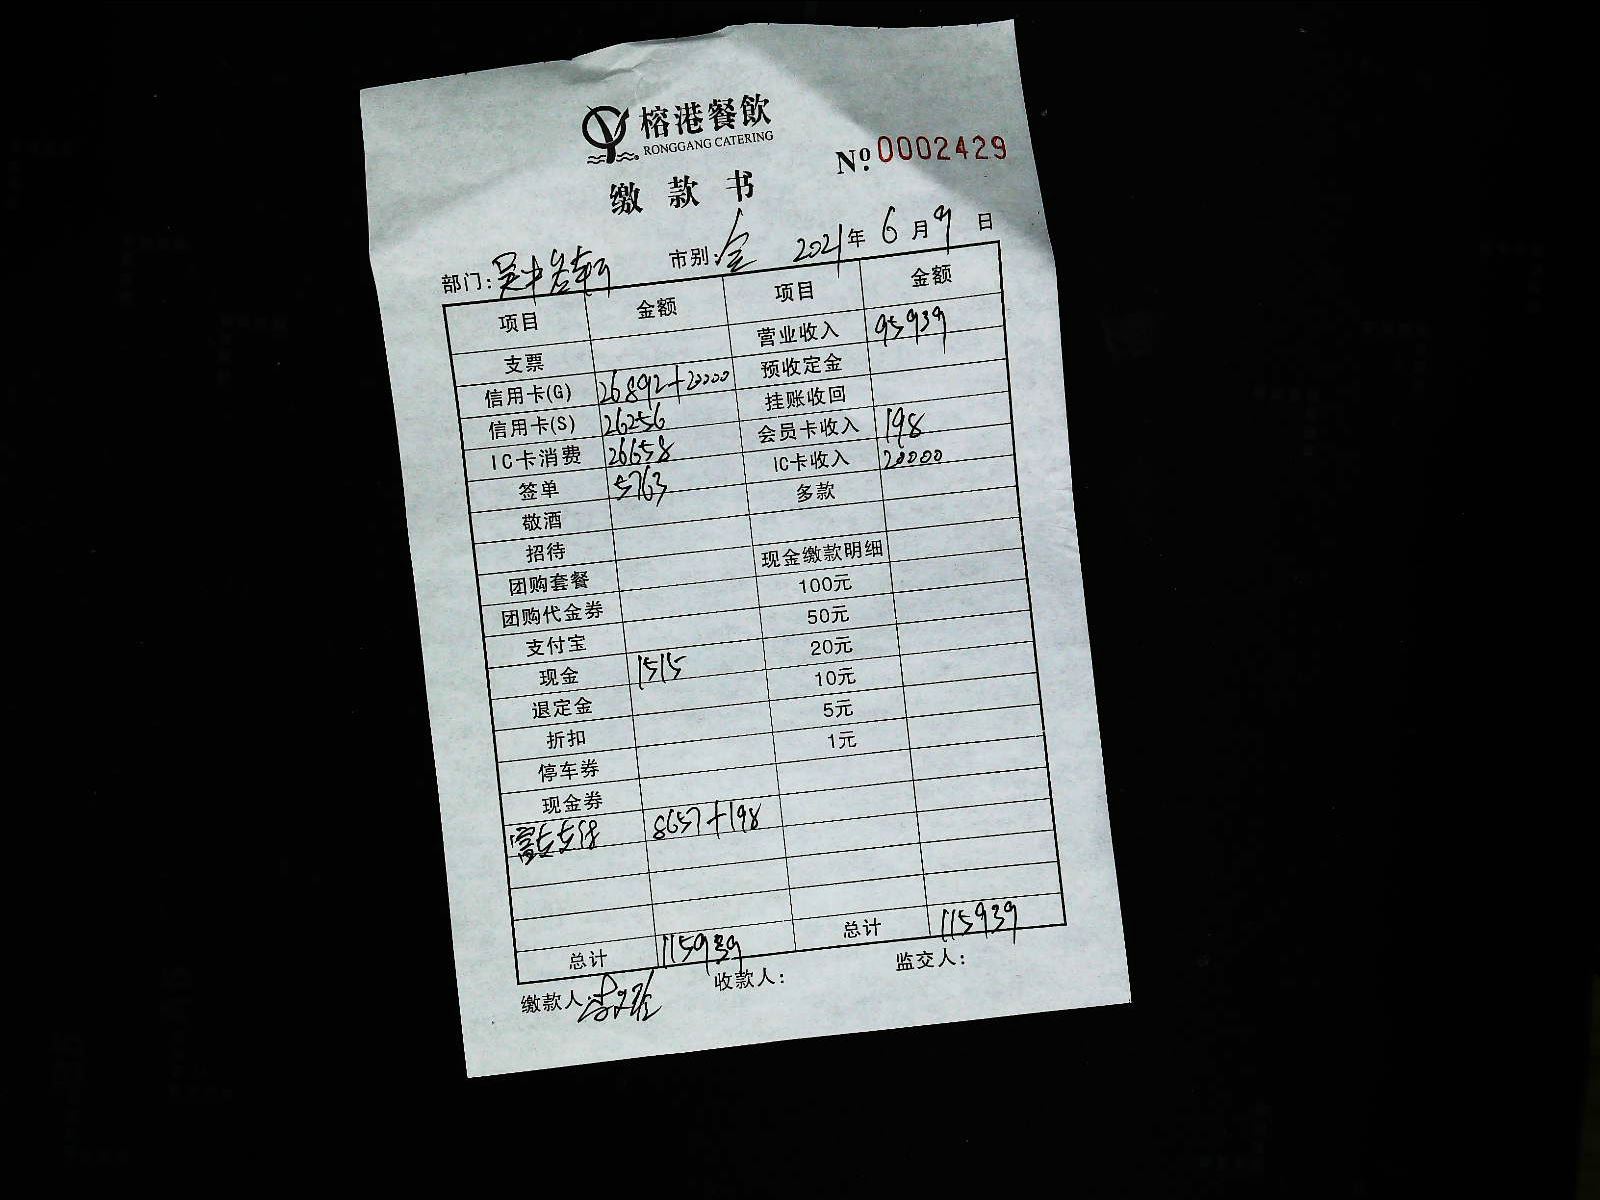 榕港餐飲
RONGGANG CATERING
Nº:0002429
缴款书
部门: 市别:全 2021年6月9日
项目 金额 项目 金额
支票 营业收入 95939
信用卡(G) 26892+20000 预收定金
信用卡(S) 26256 挂账收回
IC卡消费 26658 会员卡收入 198
签单 5763 IC卡收入 20000
敬酒 多款
招待
团购套餐 现金缴款明细
团购代金券 100元
支付宝 50元
现金 1515 20元
退定金 10元
折扣 5元
停车券 1元
现金券
8657+198
总计 115939 总计 115939
缴款人: 收款人: 监交人: